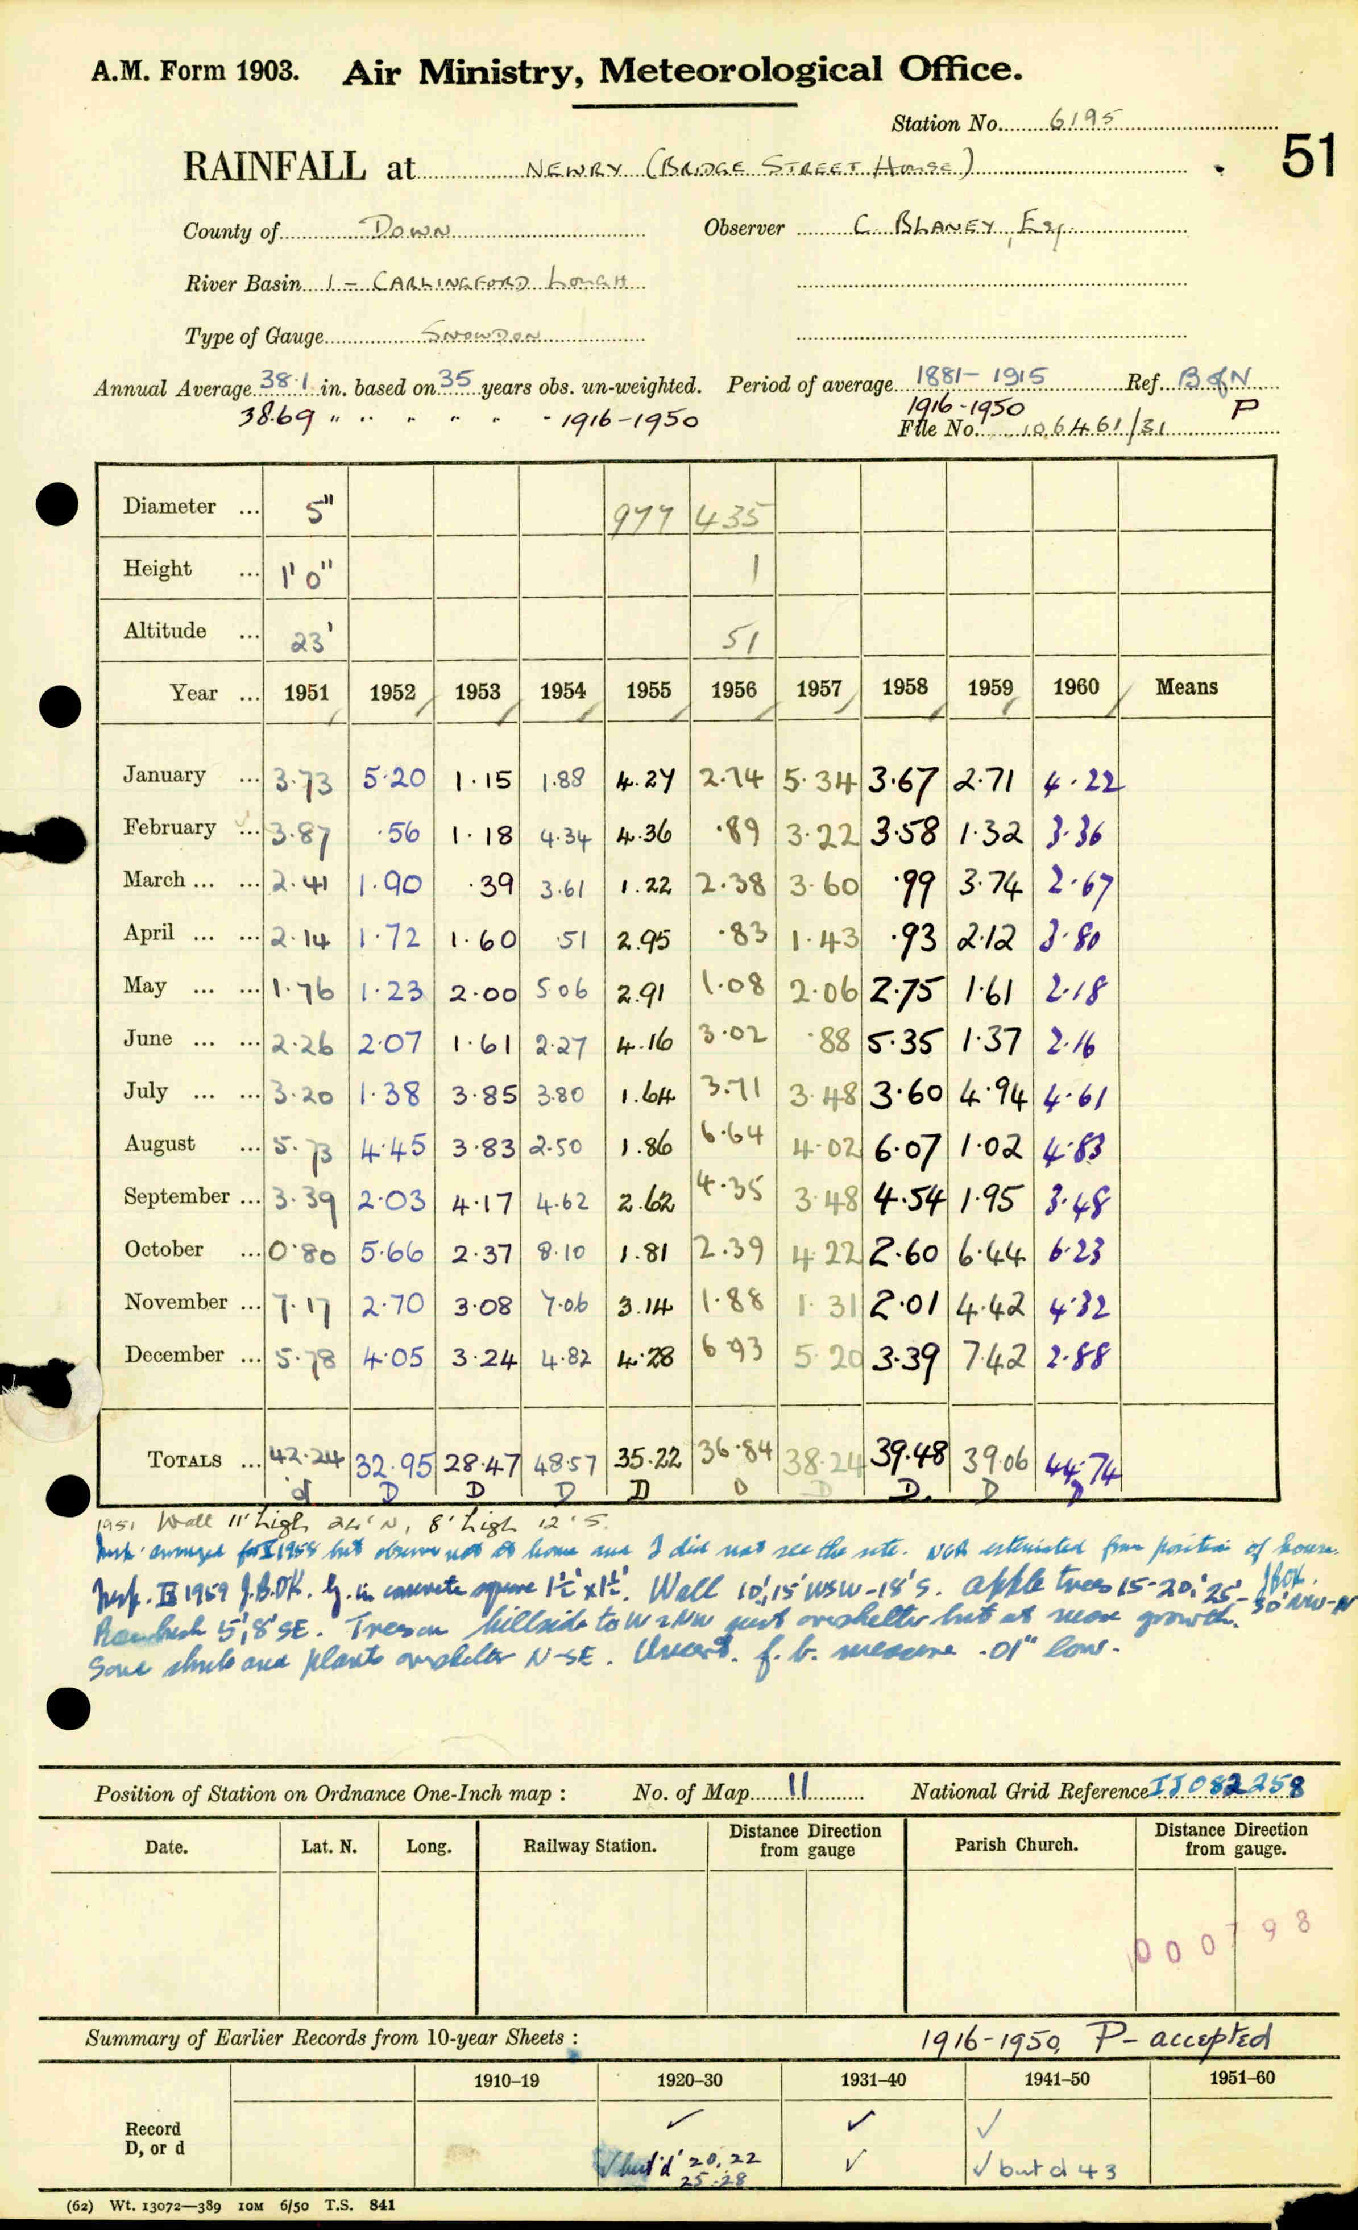 A.M. Form 1903. Air Ministry, Meteorological Office.
Station No. 6195
51
RAINFALL at NEWRY (BRIDGE STREET HOUSE)
County of DOWN Observer C. BLANEY, Esq.
River Basin 1 - CARLINGFORD LOUGH
Type of Gauge SNOWDON
Annual Average 38.1 in. based on 35 years obs. un-weighted. Period of average 1881-1915 Ref. B of N
38.69 " " " " " - 1916-1950 1916-1950 P
File No. 106461/31
Diameter ... 5" 977 435
Height ... 1' 0" 1
Altitude ... 23' 51
Year ... 1951 1952 1953 1954 1955 1956 1957 1958 1959 1960 Means
January ... 3.73 5.20 1.15 1.88 4.27 2.74 5.34 3.67 2.71 4.22
February ... 3.87 .56 1.18 4.34 4.36 .89 3.22 3.58 1.32 3.36
March ... ... 2.41 1.90 .39 3.61 1.22 2.38 3.60 .99 3.74 2.67
April ... ... 2.14 1.72 1.60 .51 2.95 .83 1.43 .93 2.12 3.80
May ... ... 1.76 1.23 2.00 5.06 2.91 1.08 2.06 2.75 1.61 2.18
June ... ... 2.26 2.07 1.61 2.27 4.16 3.02 .88 5.35 1.37 2.16
July ... ... 3.20 1.38 3.85 3.80 1.64 3.71 3.48 3.60 4.94 4.61
August ... 5.73 4.45 3.83 2.50 1.86 6.64 4.02 6.07 1.02 4.83
September ... 3.39 2.03 4.17 4.62 2.62 4.35 3.48 4.54 1.95 3.48
October ... 0.80 5.66 2.37 8.10 1.81 2.39 4.22 2.60 6.44 6.23
November ... 7.17 2.70 3.08 7.06 3.14 1.88 1.31 2.01 4.42 4.32
December ... 5.78 4.05 3.24 4.82 4.28 6.93 5.20 3.39 7.42 2.88
TOTALS ... 42.24 32.95 28.47 48.57 35.22 36.84 38.24 39.48 39.06 44.74
d D D D D D D D. D D
1951 Wall 11' high 24' N, 8' high 12' S.
Insp. arranged for 1958 but observer not at home and I did not see the site. NGR estimated from position of house.
Insp. II 1959 J.B.OK. G. in concrete square 1½' x 1½'. Wall 10', 15' WSW-18' S. apple trees 15-20', 25'-30' NW-N
5', 8' SE. Trees on hillside to W & NW just overshelter but at near growth.
Some shrubs and plants overshelter N-SE. f. b. measure .01" low.
Position of Station on Ordnance One-Inch map : No. of Map 11 National Grid Reference IJ082258
Date. Lat. N. Long. Railway Station. Distance Direction from gauge Parish Church. Distance Direction from gauge.
000798
Summary of Earlier Records from 10-year Sheets : 1916-1950. P- accepted
1910–19 1920–30 1931–40 1941–50 1951–60
Record ✓ ✓ ✓
D, or d ✓ but 'd' 20, 22 25-28 ✓ ✓ but d 43
(62) Wt. 13072—389 10M 6/50 T.S. 841